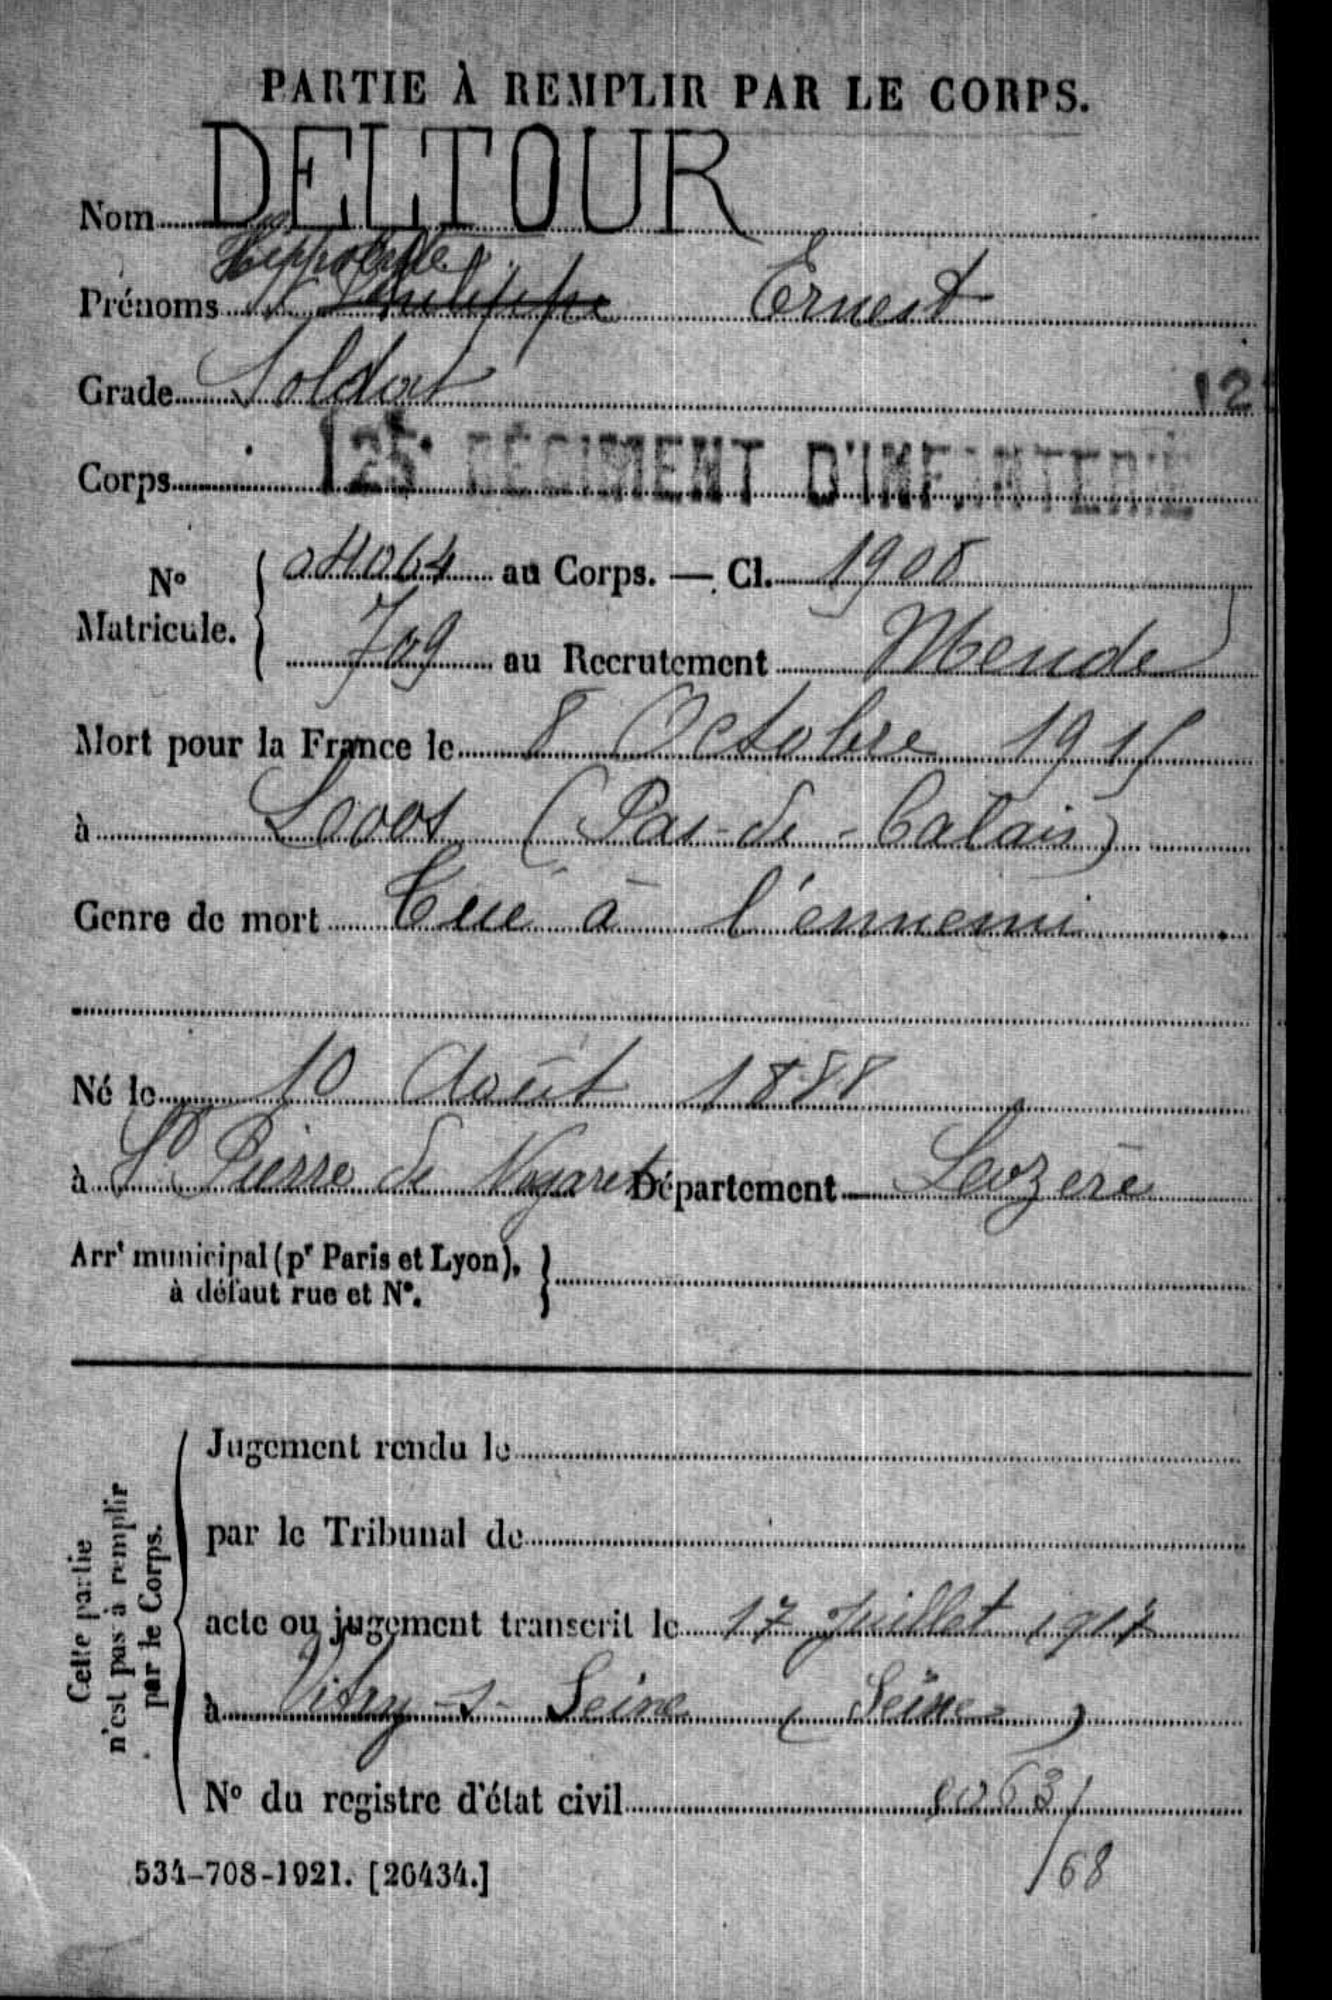 PARTIE À REMPLIR PAR LE CORPS.
Nom DELTOUR
Hippolyte
Prénoms Philippe Ernest
Grade Soldat
12
Corps 125e RÉGIMENT D'INFANTERIE
N° Matricule. 04064 au Corps. — Cl. 1908
709 au Recrutement Mende
Mort pour la France le 8 Octobre 1915
à Looos (Pas-de-Calais)
Genre de mort Tué à l'ennemi
Né le 10 Août 1888
à St Pierre de Nogaret Département Lozère
Arrt municipal (pr Paris et Lyon),
à défaut rue et N°.
Cette partie
n'est pas à remplir
par le Corps.
Jugement rendu le
par le Tribunal de
acte ou jugement transcrit le 17 Juillet 1917
à Vitry-s-Seine (Seine)
N° du registre d'état civil
534-708-1921. [26434.]
/68